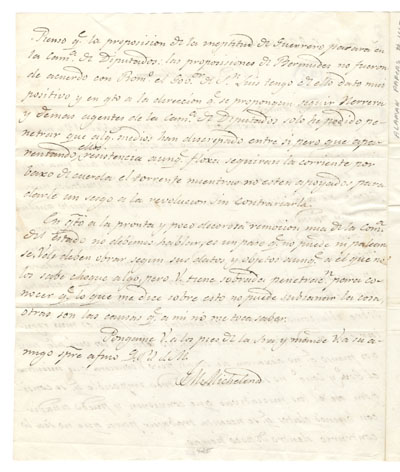 Pienso q.e la proposicion de la ineptitud de Guerrero pasara en
la Cam.a de Diputados: las proposiciones de Bermudez no fueron
de acuerdo con el Gob. de S. Luis tengo de ello dato muy
positivo y en q.to a la direccion q.e se proponian seguir Herrera
y demas agentes de la Cam.a de Diputados solo he podido pe-
netrar que alg. medios han discrepado entre si pero que apa-
rentando resistencia aunq. floxa seguiran la corriente por
baxo de cuerda el torrente mientras no esten apoyados para
darle un sesgo a la revolucion sin contrariarla.
En q.to a la pronta y poco decorosa remocion mia de la Com.
del Estado no debemos hablar, es un paso q.e no puede ni
deben obrar segun sus datos y objetos aunq. a el que no
los sabe choque algo, pero V. tiene sobrada penetrac.n para co-
nocer q.e lo que me dice sobre esto no puede la cosa,
otras son las causas q.e a mi no me toca saber.
Pongame V. a los pies de la Sra. y mande V. a su a-
migo spre. afmo. Q. B. S. M.
Michelena